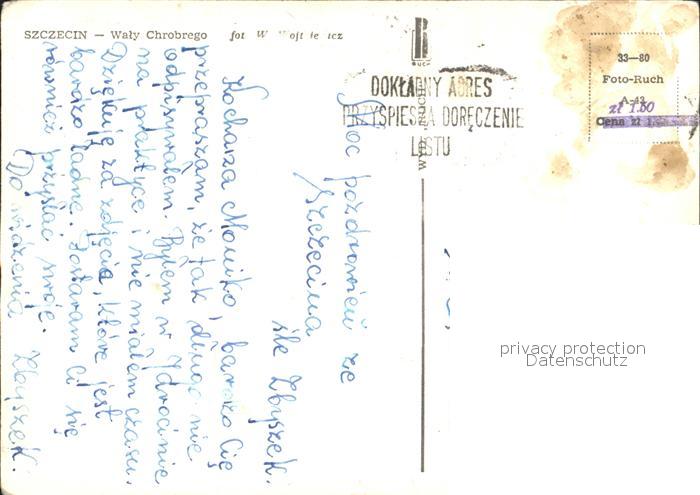 SZCZECIN — Wały Chrobrego
fot W
RUCH
DOKŁADNY ADRES
PRZYSPIESZA DORĘCZENIE
LISTU
33—80
Foto-Ruch
A-43
zł 1.80
Cena zł 1.
Moc pozdrowień ze
Szczecina
śle Zbyszek.
Kochana Moniko, bardzo Cię
przepraszam, że tak długo nie
odpisywałem. Byłem w Jarocinie
na praktyce i nie miałem czasu.
Dziękuję za zdjęcia, które jest
bardzo ładne. Postaram Ci się
również przysłać swoje.
Do widzenia Zbyszek.
privacy protection
Datenschutz